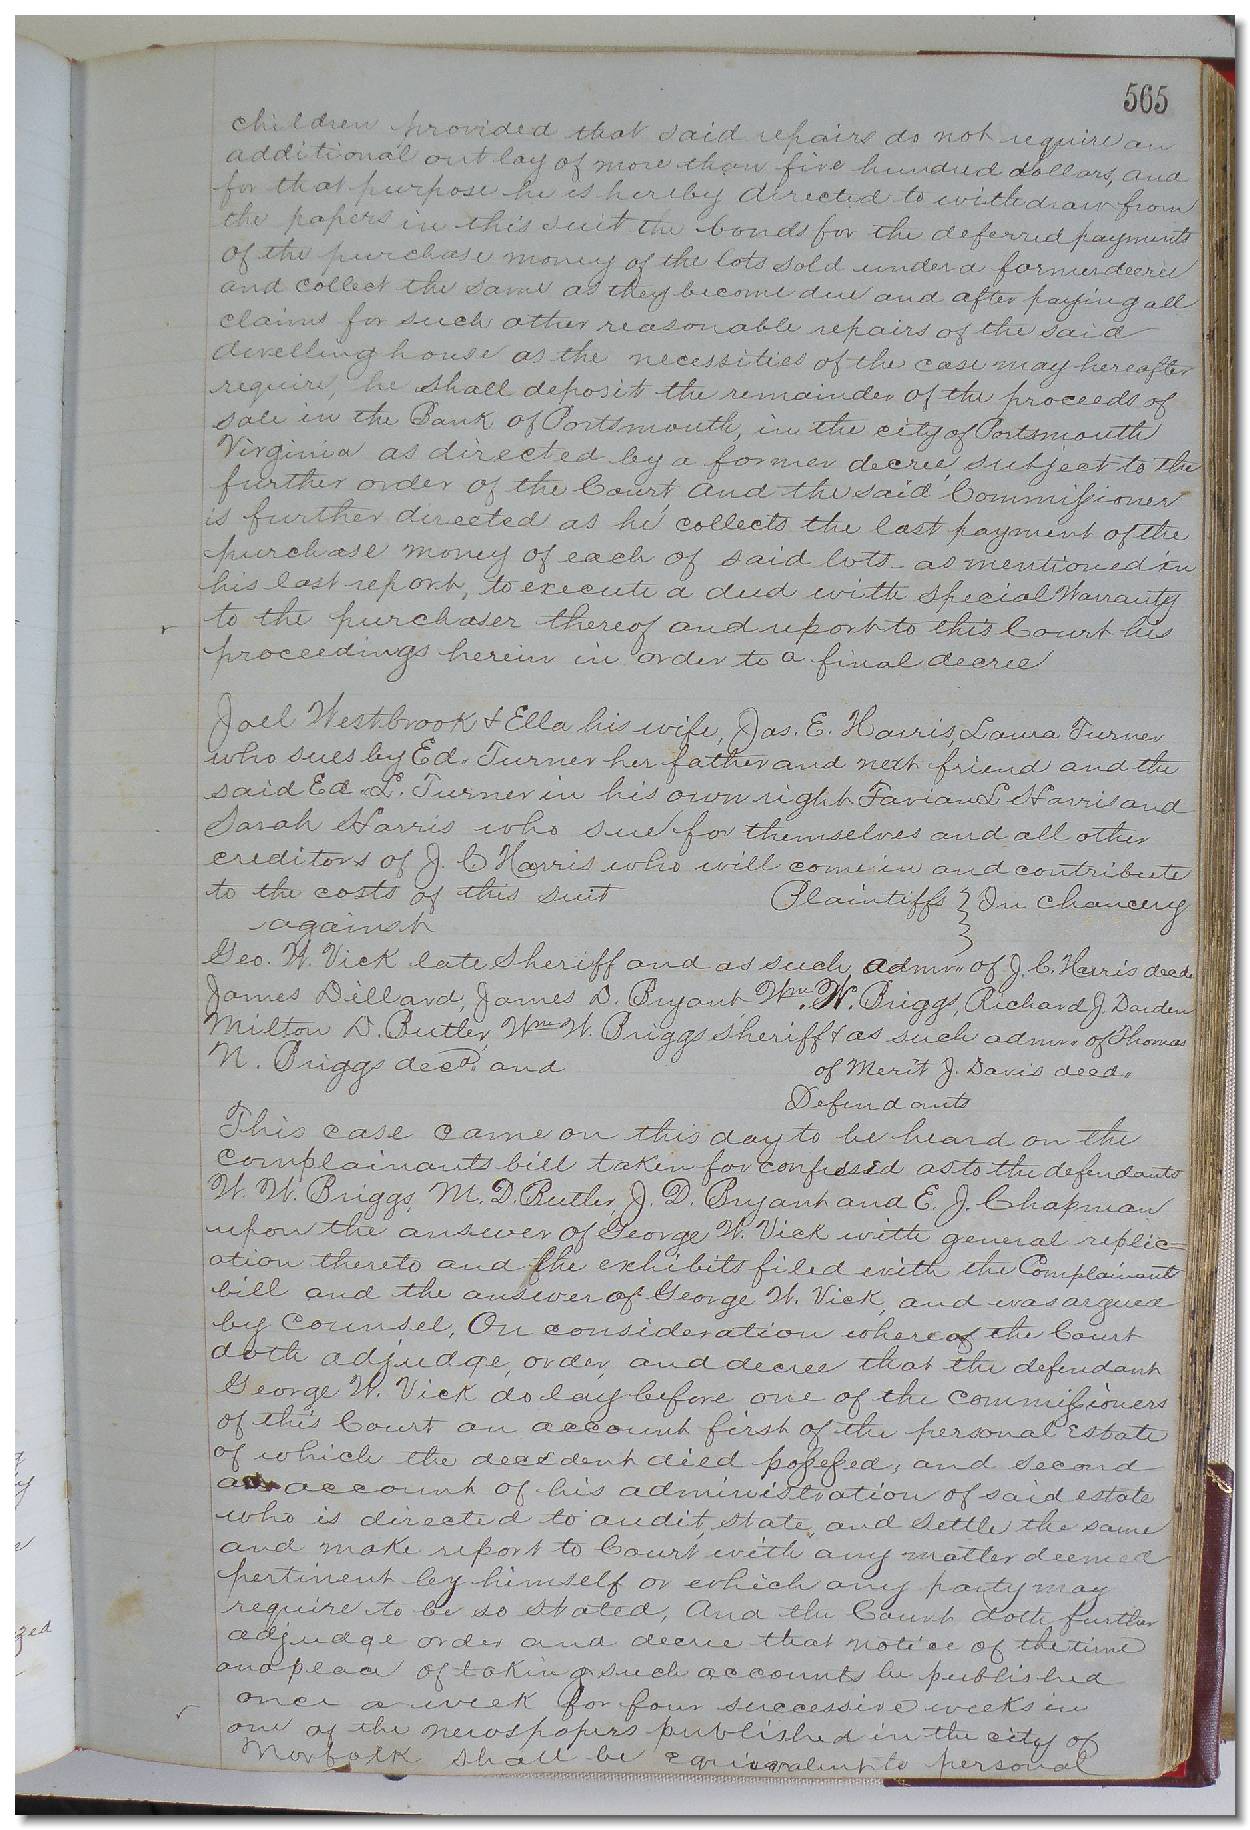 565
children, provided that said repairs do not require an
additional out lay of more than five hundred dollars, and
for that purpose he is hereby directed to withdraw from
the papers in this suit the bonds for the deferred payments
of the purchase money of the lots sold under a former decree
and collect the same as they become due and after paying all
claims for such other reasonable repairs of the said
dwelling house as the necessities of the case may hereafter
require, he shall deposit the remainder of the proceeds of
sale in the Bank of Portsmouth, in the city of Portsmouth
Virginia as directed by a former decree subject to the
further order of the Court and the said Commissioner
is further directed as he collects the last payment of the
purchase money of each of said lots as mentioned in
his last report, to execute a deed with special Warranty
to the purchaser thereof and report to this Court his
proceedings herein in order to a final decree
Joel Westbrook & Ella his wife, Jas. E. Harris, Laura Turner
who sues by Ed. Turner her father and next friend and the
said Ed L. Turner in his own right L Harris and
Sarah Harris who sue for themselves and all other
creditors of J. C Harris who will come in and contribute
to the costs of this suit Plaintiffs } In Chancery
against
Geo. W. Vick late Sheriff and as such admr. of J. C. Harris decd.
James Dillard, James D. Bryant Wm. W. Briggs, Richard J. Darden
Milton D. Butler, Wm W. Briggs sheriff & as such admr. of Thomas
N. Briggs decd. and of Merit J. Davis decd.
Defendants
This case came on this day to be heard on the
complainants bill taken for confessed as to the defendants
W. W. Briggs, M. D. Butler, J. D. Bryant and E. J. Chapman
upon the answer of George W. Vick with general replic-
ation thereto and the exhibits filed with the Complainants
bill and the answer of George W. Vick, and was argued
by counsel, On consideration whereof the Court
doth adjudge, order, and decree that the defendant
George W. Vick do lay before one of the commissioners
of this Court an account first of the personal Estate
of which the decedent died possessed, and second
an account of his administration of said estate
who is directed to audit, state, and settle the same
and make report to Court with any matter deemed
pertinent by himself or which any party may
require to be so stated, And the Court doth further
adjudge order and decree that notice of the time
and place of taking such accounts be published
once a week for four successive weeks in
one of the newspapers published in the city of
Norfolk shall be equivalent to personal